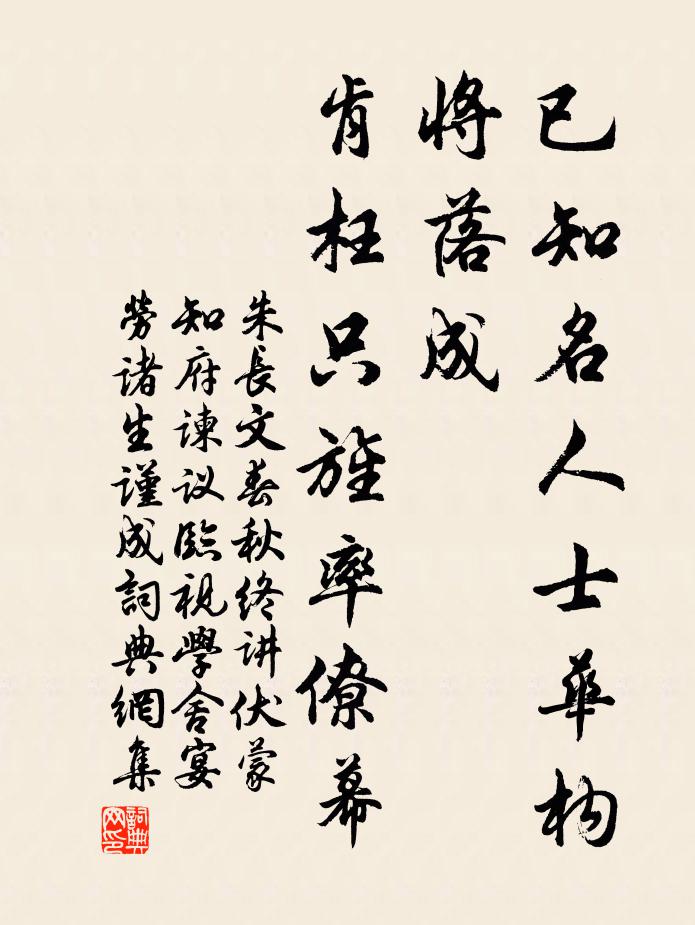 已知名人士華构
將落成
肯枉只旌率僚幕
朱長文春秋终讲伏蒙
知府谏议臨視學舍宴
劳诸生谨成詞典網集
詞典网印